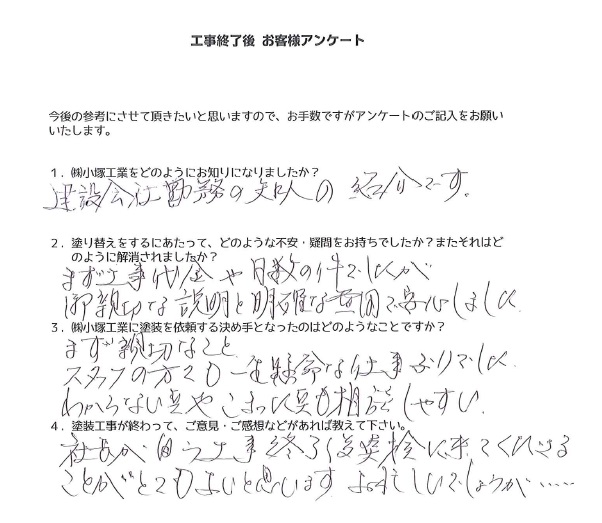 工事終了後 お客様アンケート
今後の参考にさせて頂きたいと思いますので、お手数ですがアンケートのご記入をお願い
いたします。
1．㈱小塚工業をどのようにお知りになりましたか？
建設会社勤務の知人の紹介です。
2．塗り替えをするにあたって、どのような不安・疑問をお持ちでしたか？またそれはど
のように解消されましたか？
まず工事代金や日数の件でしたが
御親切な説明と明確な回で安心しました
3．㈱小塚工業に塗装を依頼する決め手となったのはどのようなことですか？
まず親切なこと
スタッフの方々も一生懸命な仕事ぶりでした
わからない点やこまった点も相談しやすい
4．塗装工事が終わって、ご意見・ご感想などがあれば教えて下さい。
社長が自ら工事終了後点検に来てくださる
ことがとてもよいと思います お忙しいでしょうが……